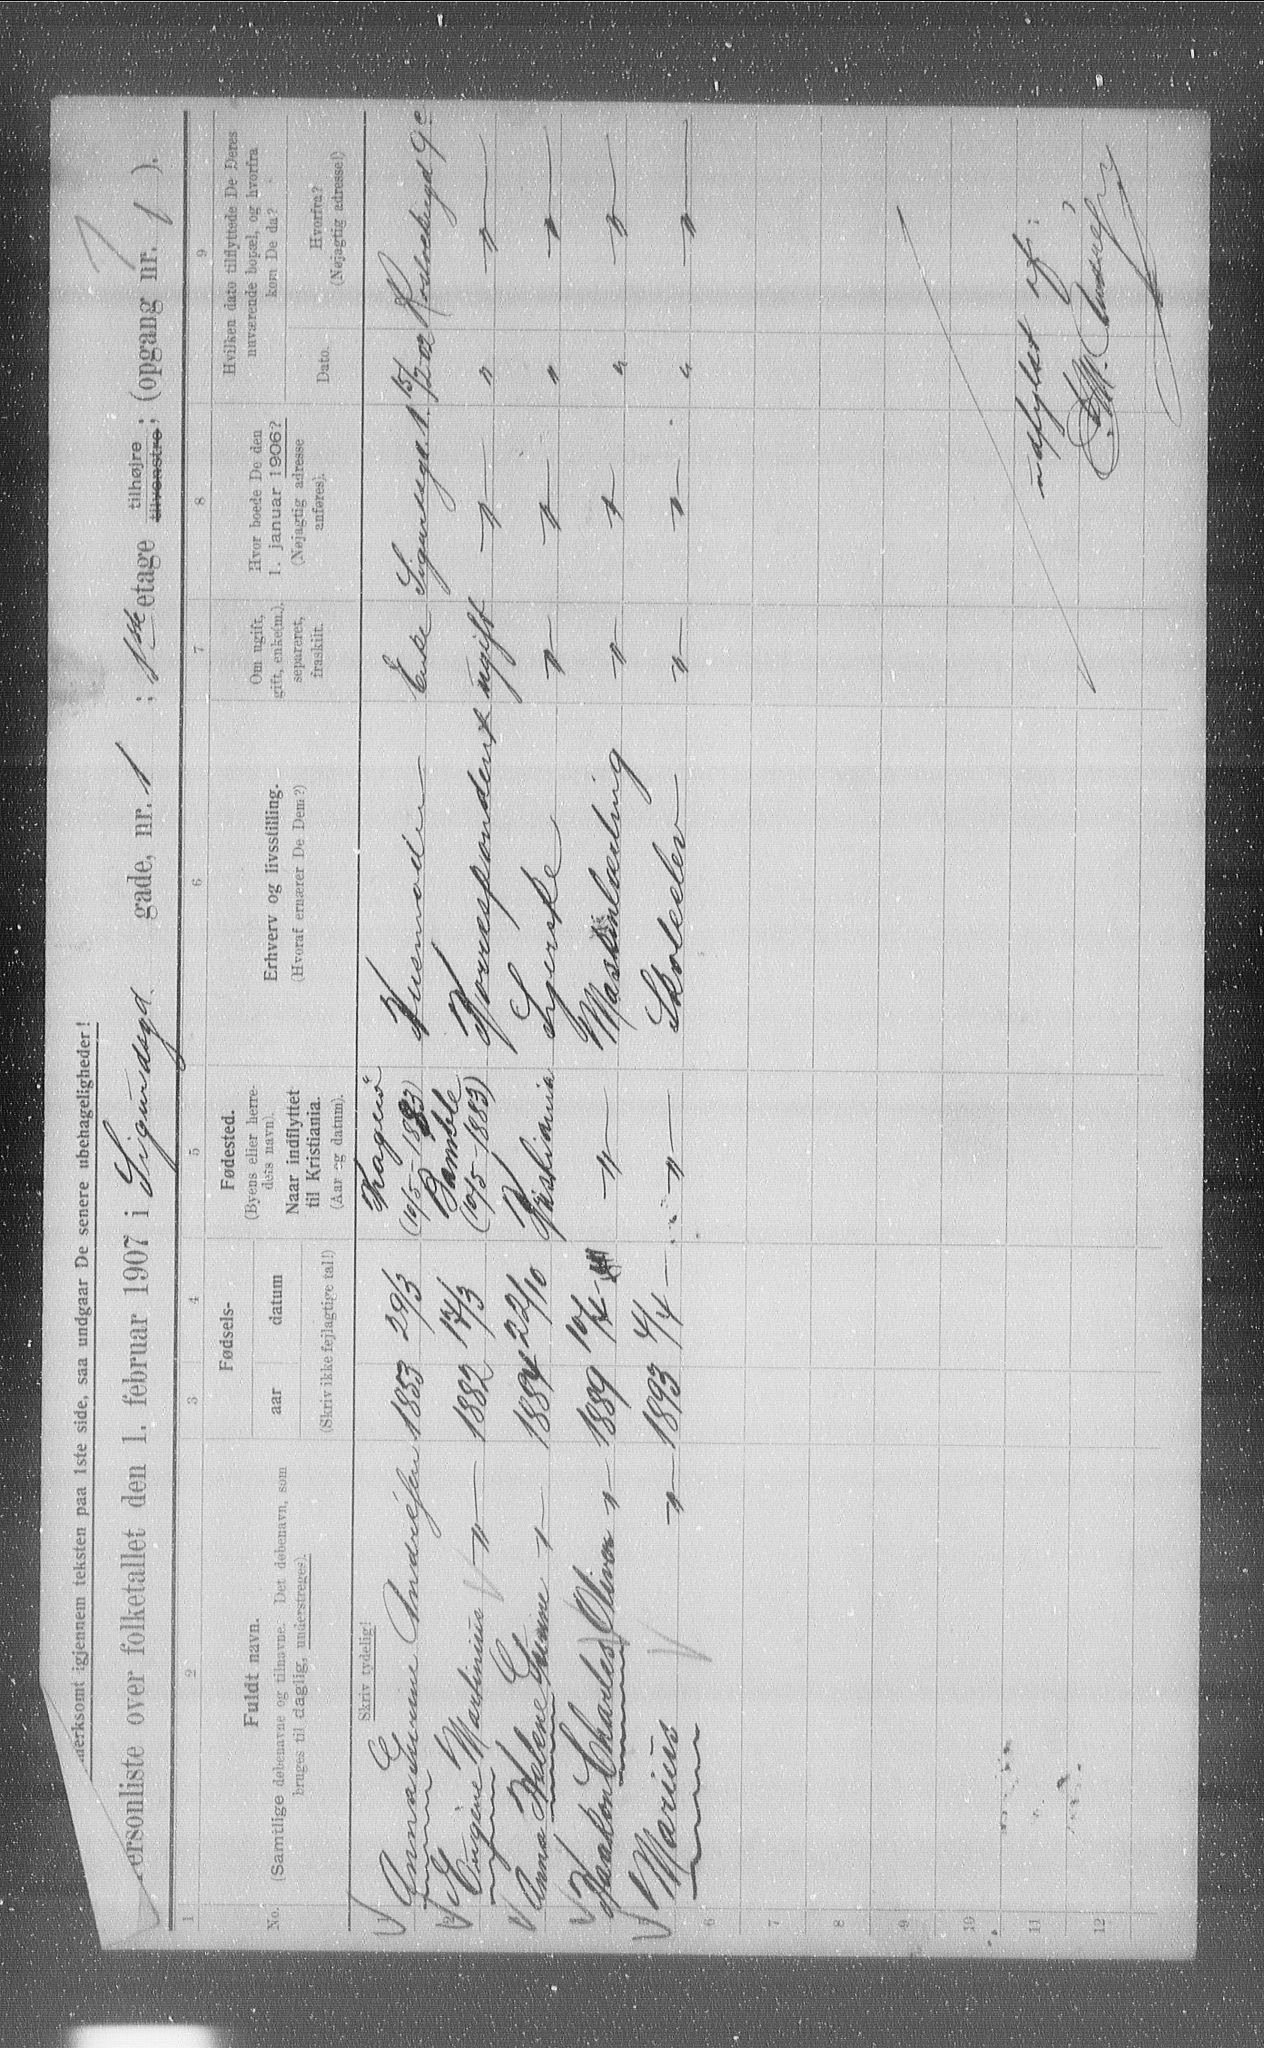 merksomt igjennem teksten paa 1ste side, saa undgaar De senere ubehageligheder!
7
ersonliste over folketallet den 1. februar 1907 i Sigurdsgd. gade, nr. 1 ; 1ste etage tilhøjre ; (opgang nr. 1 ).
tilvenstre
1 2 3 4 5 6 7 8 9
No. Fuldt navn.
(Samtlige døbenavne og tilnavne. Det døbenavn, som
bruges til daglig, understreges).
Fødsels-
aar datum
(Skriv ikke fejlagtige tal!)
Fødested.
(Byens eller herre-
dets navn).
Naar indflyttet
til Kristiania.
(Aar og datum).
Erhverv og livsstilling.
(Hvoraf ernærer De Dem?)
Om ugift,
gift, enke(m.),
separeret,
fraskilt.
Hvor boede De den
1. januar 1906?
(Nøjagtig adresse
anføres).
Hvilken dato tilflyttede De Deres
nuværende bopæl, og hvorfra
kom De da?
Dato. Hvorfra?
(Nøjagtig adresse!)
Skriv tydelig!
1 Anna Gunine Andresen 1853 29/3 Kragerø (10/5-1883) Husmoder Enke Sigurdsgd. 1. 15/2 02
2 Eugene Martinius -"- 1882 17/3 Bamble (10/5-1883) Korrespondent ugift -"- " -"-
Anna Helene Gunine -"- 1884 22/10 Kristiania Syerske -"- -"- " -"-
Haakon Charles Oliver -"- 1889 10/4 -"- Maskinlærling -"- -"- " -"-
5 Marius -"- 1893 4/4 -"- Skoleelev -"- -"- " -"-
6
7
8
9
10
11
12
udfyldt af: